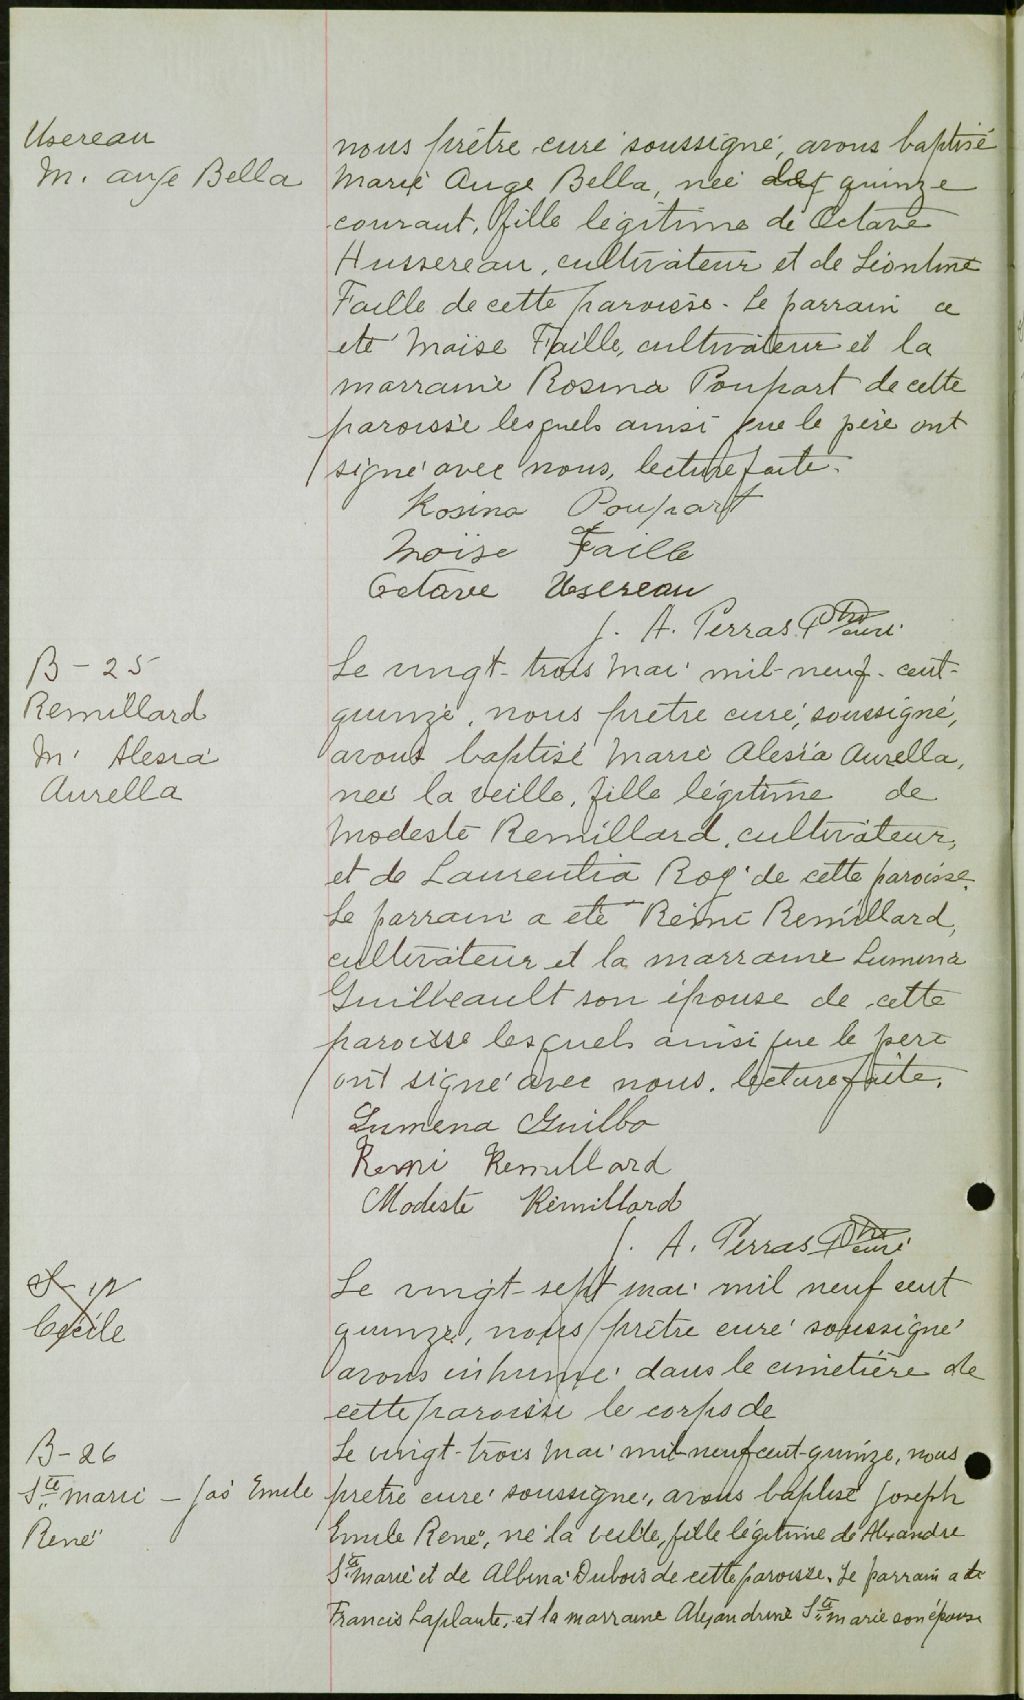 Usereau
M. ange Bella
nous prêtre curé soussigné, avons baptisé
Marie Ange Bella, née quinze
courant, fille légitime de Octave
Hussereau, cultivateur et de Léontine
Faille de cette paroisse. Le parrain a
été Moïse Faille, cultivateur et la
marraine Rosina Poupart de cette
paroisse lesquels ainsi que le père ont
signé avec nous, lecture faite.
Rosina Poupart
Moïse Faille
Octave Usereau
J. A. Perras Ptre curé
B - 25
Remillard
M. Alesia
Aurella
Le vingt-trois mai mil-neuf-cent-
quinze, nous prêtre curé, soussigné,
avons baptisé Marie Alesia Aurella,
née la veille, fille légitime de
Modeste Remillard, cultivateur,
et de Laurentia Roy de cette paroisse.
Le parrain a été Rémi Remillard,
cultivateur et la marraine Lumina
Guilbeault son épouse de cette
paroisse lesquels ainsi que le père
ont signé avec nous. lecture faite.
Lumena Guilbo
Remi Remillard
Modeste Rémillard
J. A. Perras Ptre curé
Cécile
Le vingt-sept mai mil neuf cent
quinze, nous prêtre curé soussigné
avons inhumé dans le cimetière de
cette paroisse le corps de
B - 26
Ste marie - Jos Emile
René
Le vingt-trois mai mil-neuf cent-quinze, nous
prêtre curé soussigné, avons baptisé Joseph
Emile René, né la veille, fille légitime de Alexandre
Ste marie et de Albina Dubois de cette paroisse. Le parrain a été
Francis Laplante, et la marraine Alexandrine Ste marie son épouse